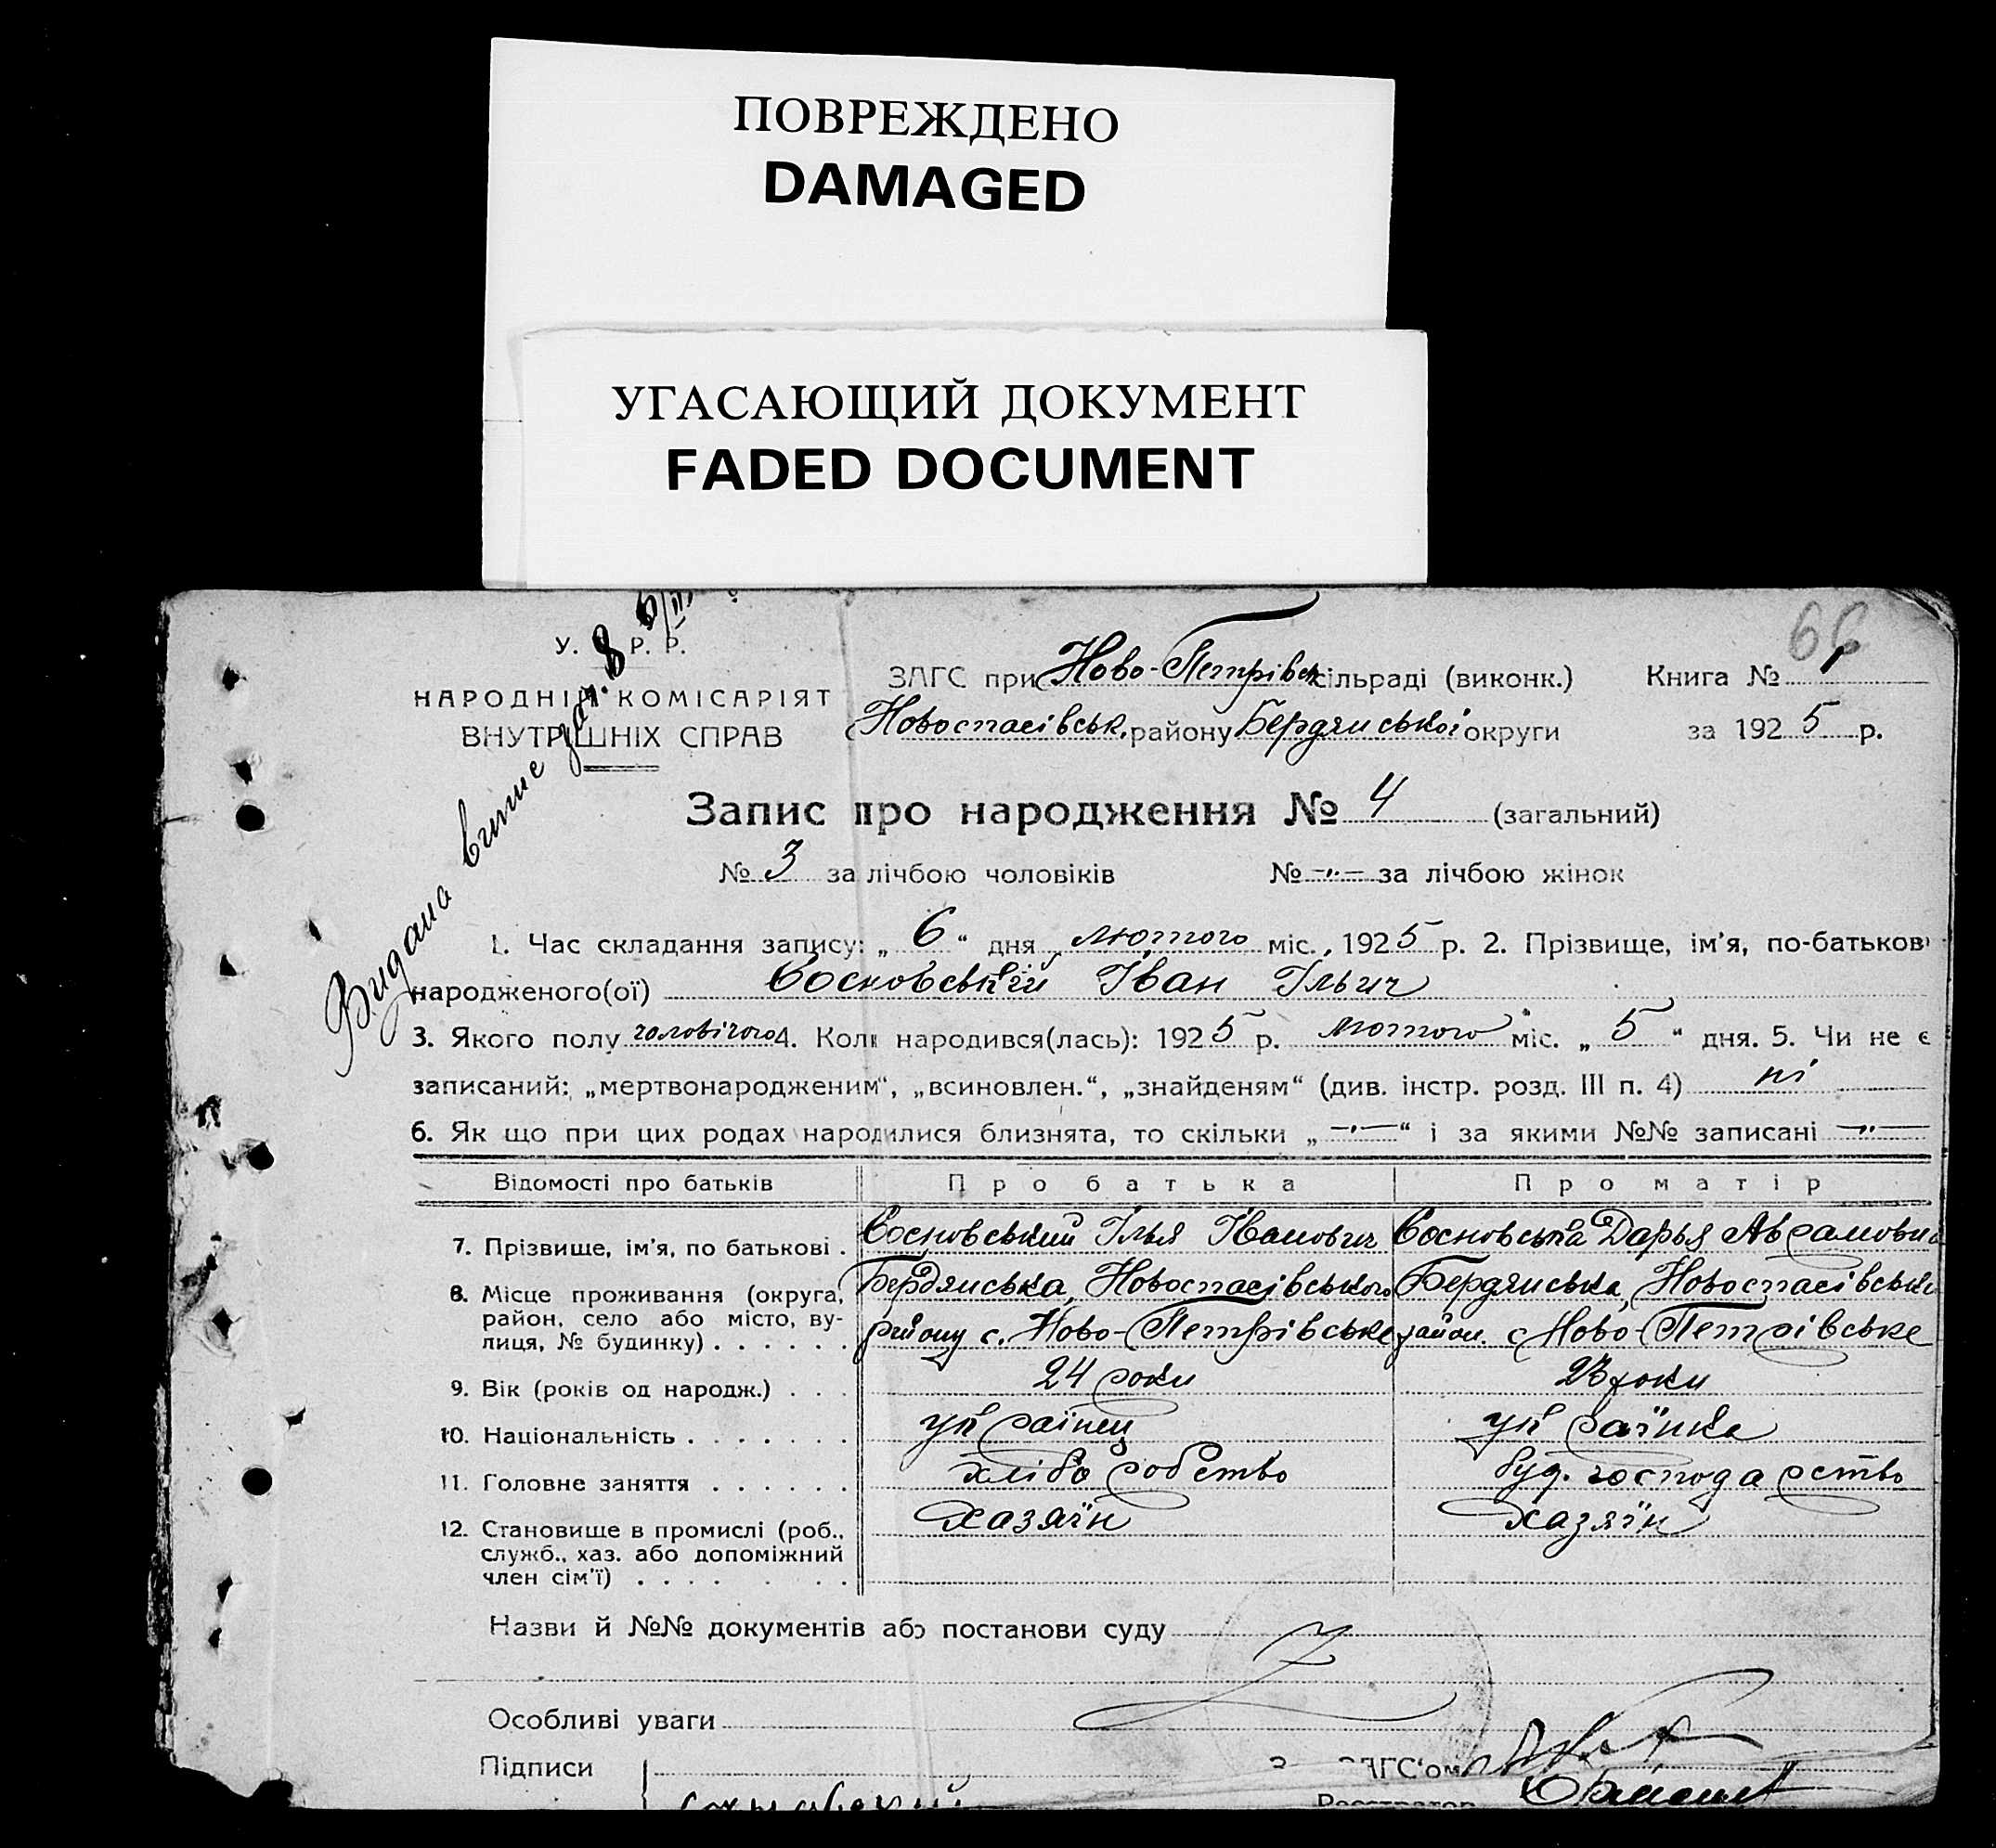 ПОВРЕЖДЕНО
DAMAGED
УГАСАЮЩИЙ ДОКУМЕНТ
FADED DOCUMENT
66
У. Р. Р.
НАРОДНІЙ КОМІСАРІЯТ
ВНУТРІШНІХ СПРАВ
Видана витис
ЗАГС при Ново-Петрівськ сільраді (виконк.) Книга № 1
Новоспасівськ. району Бердянської округи за 1925 р.
Запис про народження № 4 (загальний)
№ 3 за лічбою чоловіків № -"- за лічбою жінок
1. Час складання запису: „ 6 “ дня лютого міс., 1925 р. 2. Прізвище, ім’я, по-батькові
народженого(ої) Сосновський Іван Ільич
3. Якого полу чоловічого 4. Коли народився(лась): 1925 р. лютого міс. „ 5 “ дня. 5. Чи не є
записаний: „мертвонародженим“, „всиновлен.“, „знайденям“ (див. інстр. розд. III п. 4) ні
6. Як що при цих родах народилися близнята, то скільки „ -"- “ і за якими №№ записані -"-
Відомості про батьків Про батька Про матір
7. Прізвище, ім’я, по батькові . Сосновський Ілья Іванович Сосновська Дарья Аврамовна
8. Місце проживання (округа, Бердянська, Новоспасівського Бердянська, Новоспасівськ
район, село або місто, ву- району с. Ново-Петрівське район. с Ново-Петрівське
лиця, № будинку) . . . . . .
9. Вік (років од народж.) . . . 24 роки 23 роки
10. Національність . . . . . . . українец українка
11. Головне заняття . . . . . . хліборобство буд. господарство
12. Становище в промислі (роб., хазяїн хазяїн
служб., хаз. або допоміжний
член сім’ї) . . . . . . .
Назви й №№ документів або постанови суду
Особливі уваги
Підписи ЗАГС’ом
Реєстратор